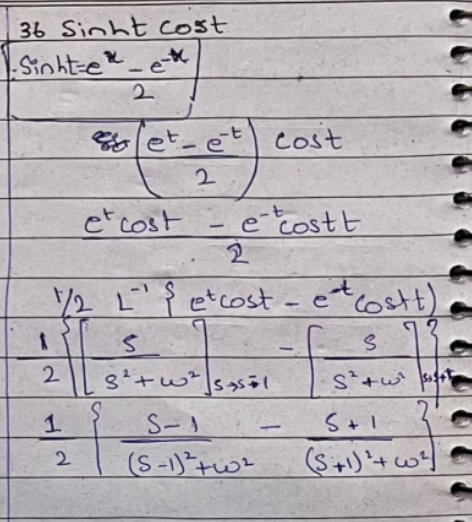 36 Sinht cost
Sinht = e^x - e^-x / 2
(e^t - e^-t / 2) cost
e^t cost - e^-t cost t / 2
1/2 L^-1 { e^t cost - e^-t cost t)
1/2 { [ S / S² + ω² ] s→s-1 - [ S / S² + ω² ] s→s+1 }
1/2 { S-1 / (S-1)² + ω² - S+1 / (S+1)² + ω² }